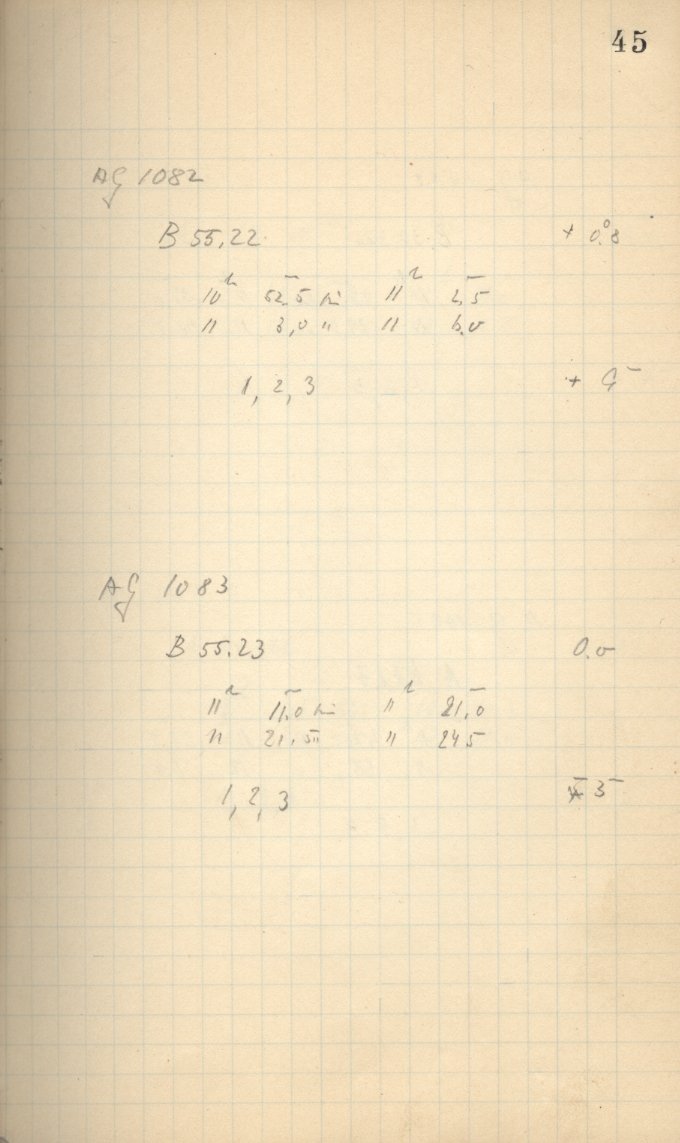 45
AG 1082
B 55,22 + 0°.8
10ʰ 52,5 bis 11ʰ 2,5
11 3,0 " 11 6.0
1, 2, 3 +
AG 1083
B 55.23 0.0
11ʰ 11,0 bis 11ʰ 21,0
11 21,5 " 11 24 5
1, 2, 3 3